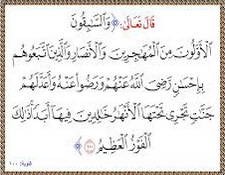 قَالَ تَعَالَى: ﴿وَالسَّابِقُونَ
الْأَوَّلُونَ مِنَ الْمُهَاجِرِينَ وَالْأَنصَارِ وَالَّذِينَ اتَّبَعُوهُم
بِإِحْسَانٍ رَّضِيَ اللَّهُ عَنْهُمْ وَرَضُوا عَنْهُ وَأَعَدَّ لَهُمْ
جَنَّاتٍ تَجْرِي تَحْتَهَا الْأَنْهَارُ خَالِدِينَ فِيهَا أَبَدًا ذَٰلِكَ
الْفَوْزُ الْعَظِيمُ ﴿١٠٠﴾
التوبة: ١٠٠